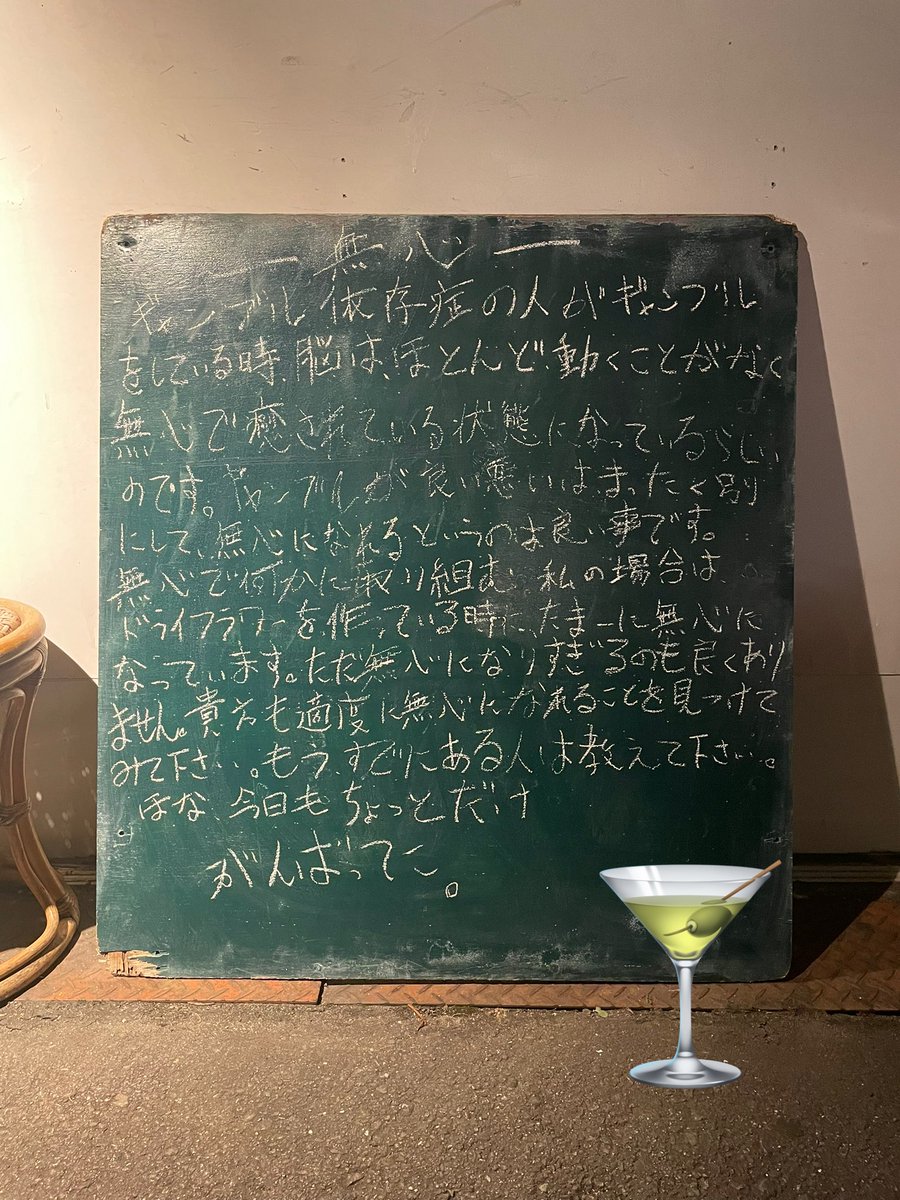 ― 無心 ―
ギャンブル依存症の人がギャンブル
をしている時、脳は、ほとんど動くことがなく
無心で癒されている状態になっているらしい
のです。ギャンブルが良い悪いは、まったく別
にして、無心になれるというのは良い事です。
無心で何かに取り組む、私の場合は、
ドライフラワーを作っている時、たまーに無心に
なっています。ただ無心になりすぎるのも良くあり
ません。貴方も適度に無心になれることを見つけて
みて下さい。もう、すでにある人は教えて下さい。
ほな、今日もちょっとだけ
がんばってこ。